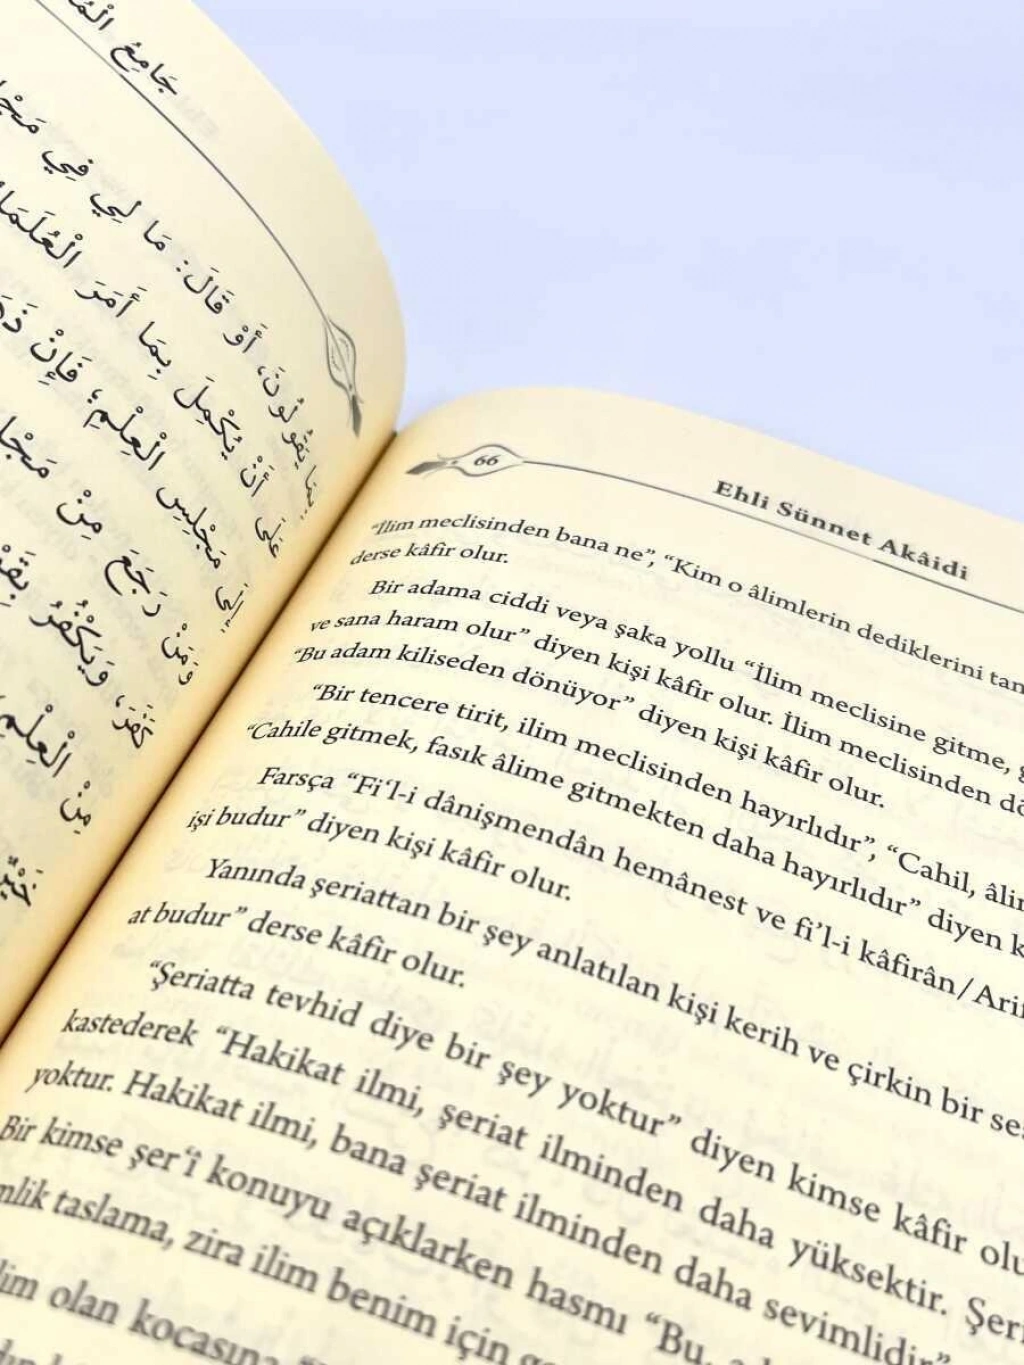 جَامِعُ
مَا لِي فِي
يَقُولُونَ، أَوْ قَالَ:
عَلَى أَنْ يُكْمِلَ بِمَا أَمَرَ
إِلَى مَجْلِسِ الْعِلْمِ؛ فَإِنْ
وَمَنْ رَجَعَ مِنْ
كَفَرَ، وَيَكْفُرُ
مِنْ الْعِلْمِ
خَيْرٌ
66
Ehli Sünnet Akâidi
“İlim meclisinden bana ne”, “Kim o âlimlerin dediklerini
derse kâfir olur.
Bir adama ciddi veya şaka yollu “İlim meclisine gitme,
ve sana haram olur” diyen kişi kâfir olur. İlim meclisinden
“Bu adam kiliseden dönüyor” diyen kişi kâfir olur.
“Bir tencere tirit, ilim meclisinden hayırlıdır”, “Cahil,
“Cahile gitmek, fasık âlime gitmekten daha hayırlıdır” diyen
Farsça “Fi‘l-i dânişmendân hemânest ve fi’l-i kâfirân/
işi budur” diyen kişi kâfir olur.
Yanında şeriattan bir şey anlatılan kişi kerih ve çirkin bir
at budur” derse kâfir olur.
“Şeriatta tevhid diye bir şey yoktur” diyen kimse kâfir
kastederek “Hakikat ilmi, şeriat ilminden daha yüksektir.
yoktur. Hakikat ilmi, bana şeriat ilminden daha sevimlidir”
Bir kimse şer‘î konuyu açıklarken hasmı “Bu,
taslama, zira ilim benim için
olan kocasına